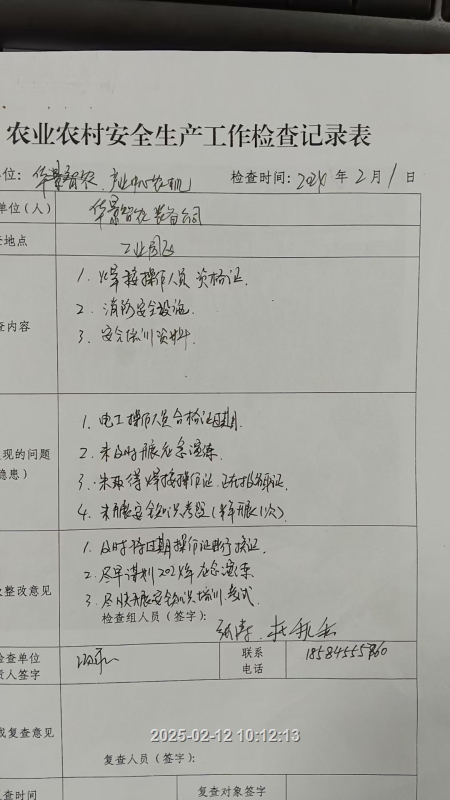 农业农村安全生产工作检查记录表
位: 华景智农、产业中心农机 检查时间: 2024 年 2 月 1 日
单位(人) 华景智农装备公司
地点 工业园区
查内容 1. 焊接操作人员资格证.
2. 消防安全设施.
3. 安全培训资料.
现的问题
隐患) 1. 电工操作人员合格证过期.
2. 未及时开展应急演练.
3. 未取得焊接操作证, 已报名取证.
4. 未开展安全知识考题(半年开展1次).
整改意见 1. 及时将过期操作证进行换证.
2. 尽早谋划2024年应急演练
3. 尽快开展安全知识培训考试.
检查组人员(签字):
检查单位
责人签字
联系
电话 18584555760
或复查意见
2025-02-12 10:12:13
复查人员(签字):
查时间 复查对象签字